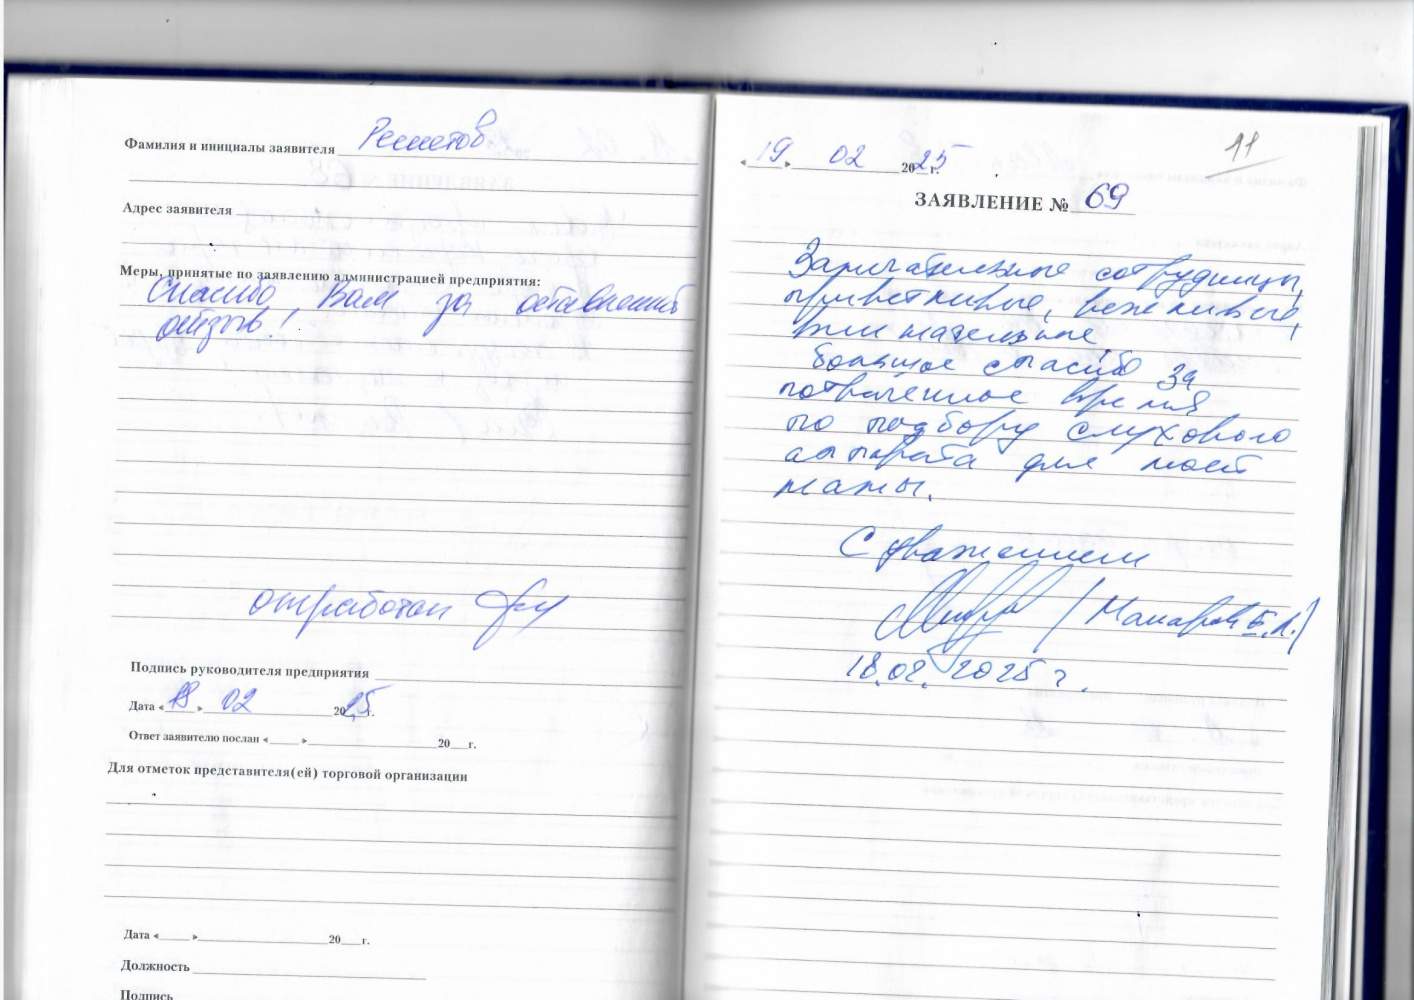 Фамилия и инициалы заявителя Решетов
Адрес заявителя
Меры, принятые по заявлению администрацией предприятия:
Спасибо Вам за оставленный
отзыв!
отработан
Подпись руководителя предприятия
Дата « 19 » 02 2025 г.
Ответ заявителю послан « » 20 г.
Для отметок представителя(ей) торговой организации
Дата « » 20 г.
Должность
Подпись
11
« 19 » 02 2025 г.
ЗАЯВЛЕНИЕ № 69
Замечательные сотрудницы,
приветливые, вежливые,
внимательные.
большое спасибо за
потраченное время
по подбору слухового
аппарата для моей
мамы.
С уважением
18.02.2025 г.